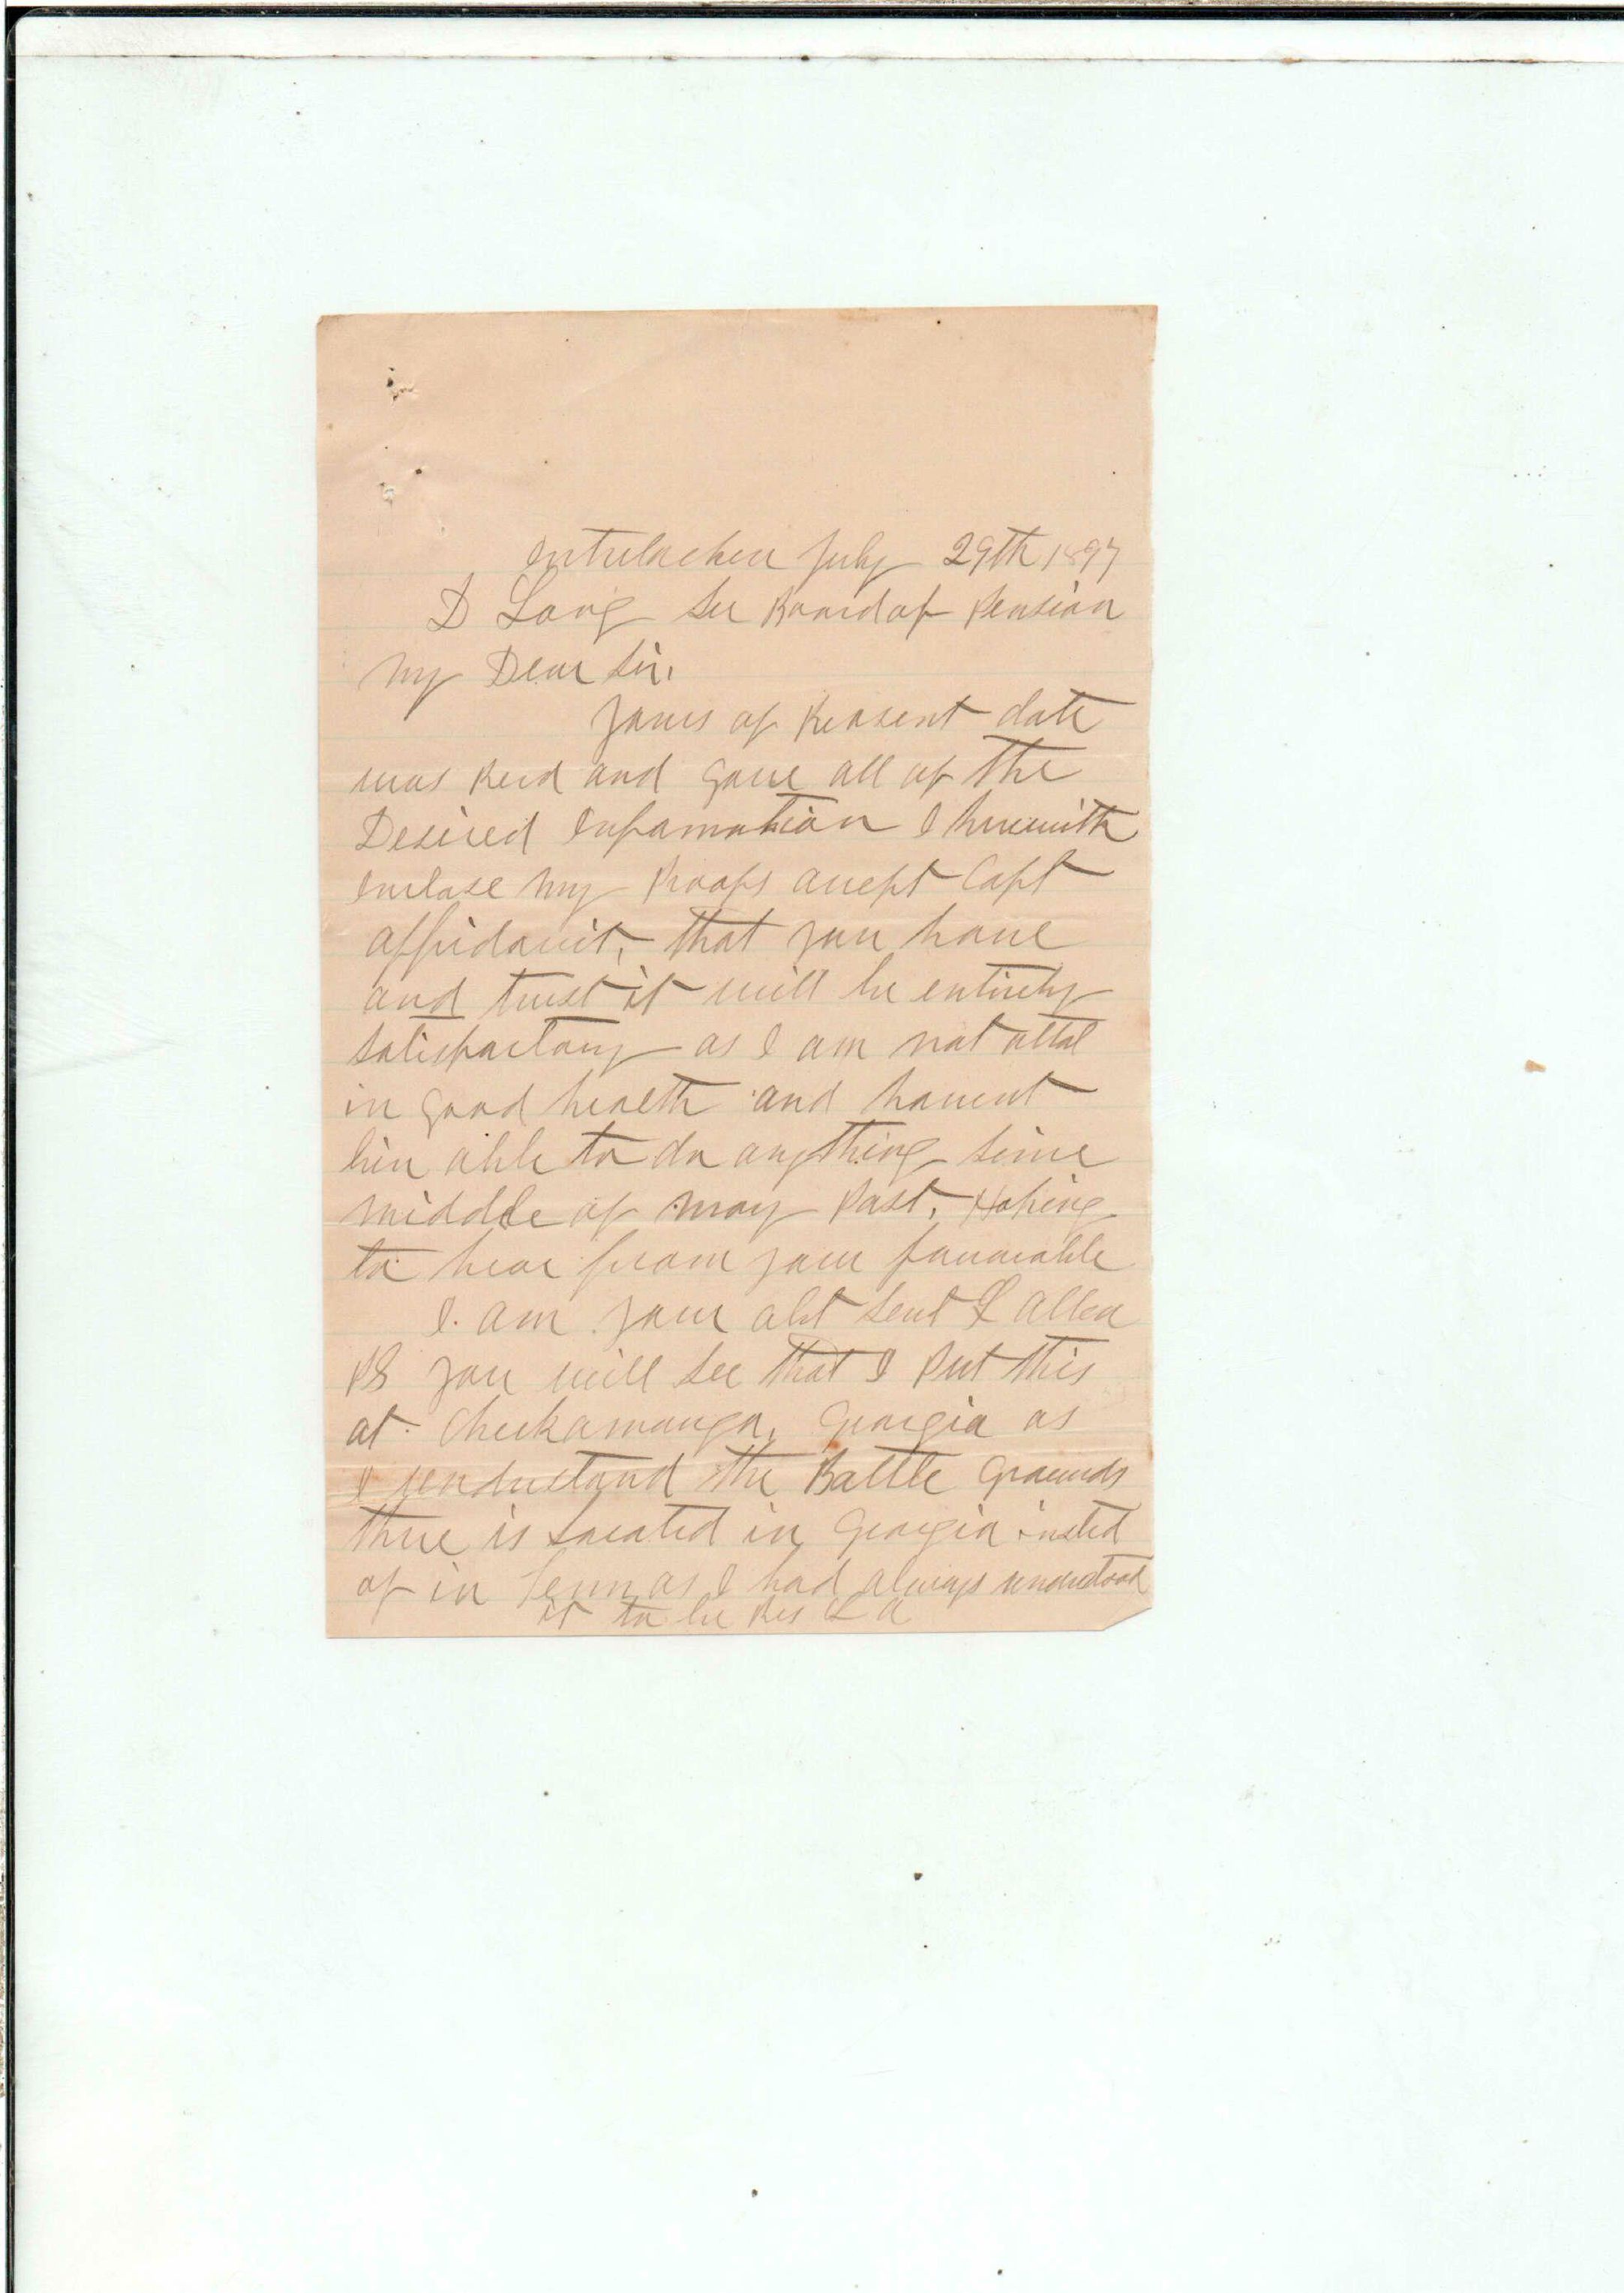 Interlachen July 29th 1897
D Lang Sec Board of Pension
My Dear Sir,
Yours of Resent date
was Recd and gave all of the
Desired Infamation I herewith
enclose my Proofs except Capt
affidavit, that you have
and trust it will be entirely
satisfactory as I am not attal
in good health and havent
bin able to do anything since
middle of may Past, Hoping
to hear from you favorable
I am your obt Servt L Allen
PS you will see that I Put this
at Checkamauga, Georgia as
I understand the Battle Grounds
there is Located in Georgia insted
of in Tenn as I had always understood
it to be Res L A